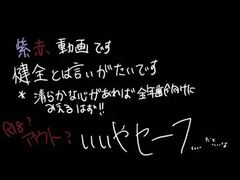 紫赤動画です
健全とは言いがたいです
* 清らかな心があれば全年齢向けに
みえるはず!!
R18?
アウト?
いいやセーフ......だと...いいな